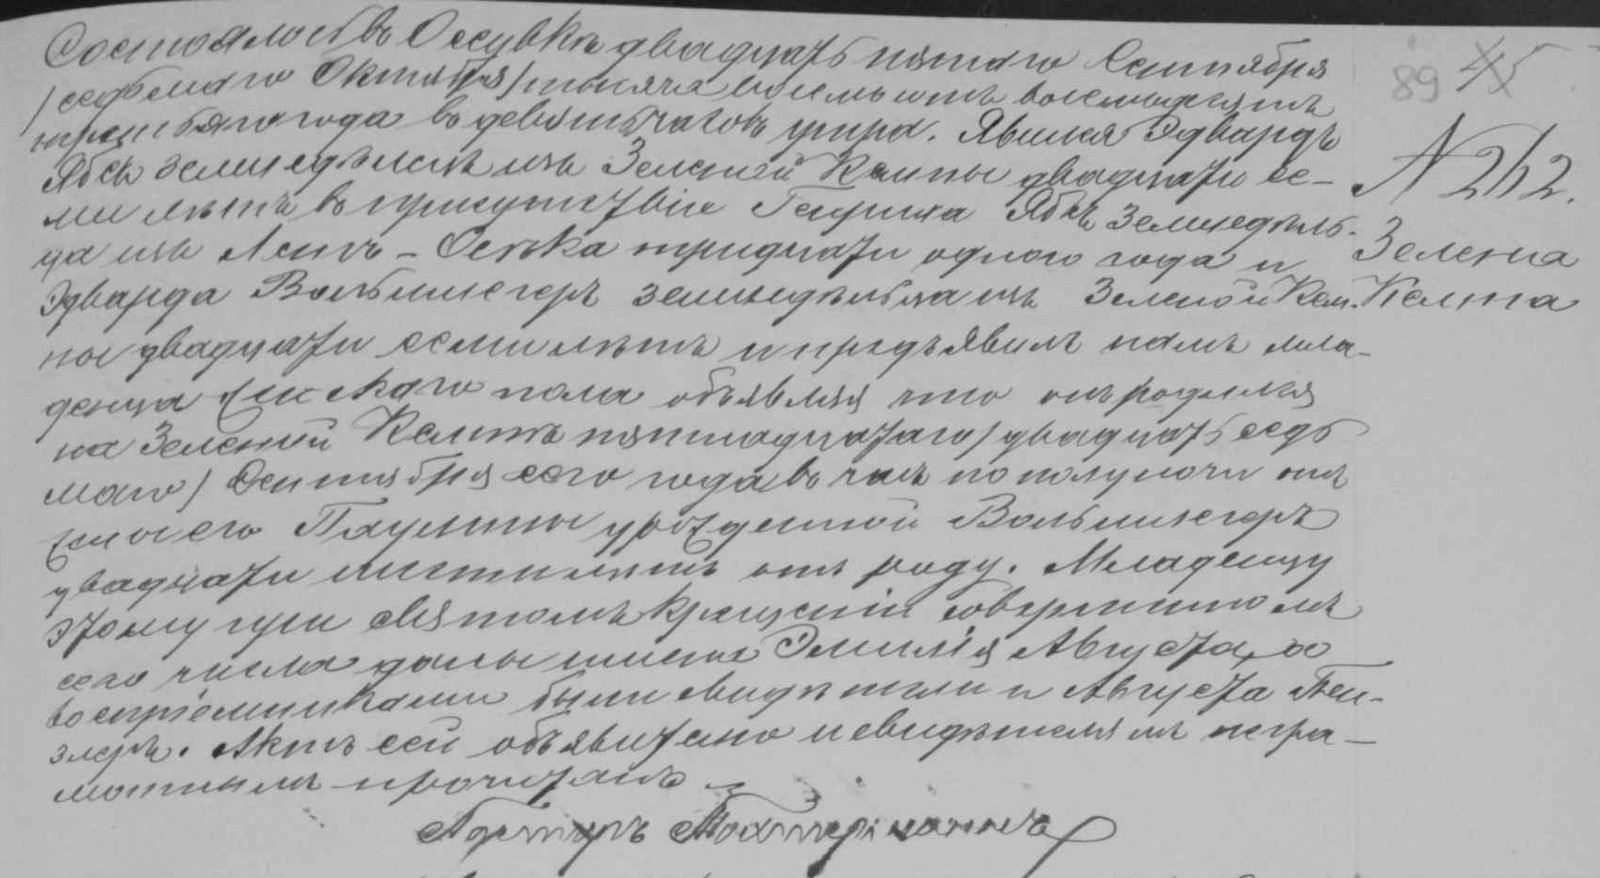 89 45
Состоялось въ Осувкѣ двадцать пятаго Сентября
/седьмаго Октября/ тысяча восемьсотъ восемьдесятъ
третьяго года въ девять часовъ утра. Явился Эдвардъ
Ябсъ земледѣлецъ изъ Зеленой Кемпы двадцати се-
ми лѣтъ въ присутствіи Генриха Ябсъ земледѣль-
ца изъ Осѣка тридцати одного года и
Эдварда Вольшлегеръ земледѣльца изъ Зеленой Кем-
пы двадцати семи лѣтъ и предъявилъ намъ мла-
денца женскаго пола объявляя что онъ родился
на Зеленой Кемпѣ пятнадцатаго /двадцать седь-
маго/ Сентября сего года въ часъ по полуночи отъ
жены его Паулины урожденной Вольшлегеръ
двадцати шести лѣтъ отъ роду. Младенцу
этому при Святомъ Крещеніи совершенномъ
сего числа даны имена Эмилія Августа, а
воспріемниками были свидѣтели и Августа
Актъ сей объявителю и свидѣтелямъ негра-
мотнымъ прочитанъ
Пасторъ
N 212.
Зелена
Кемпа